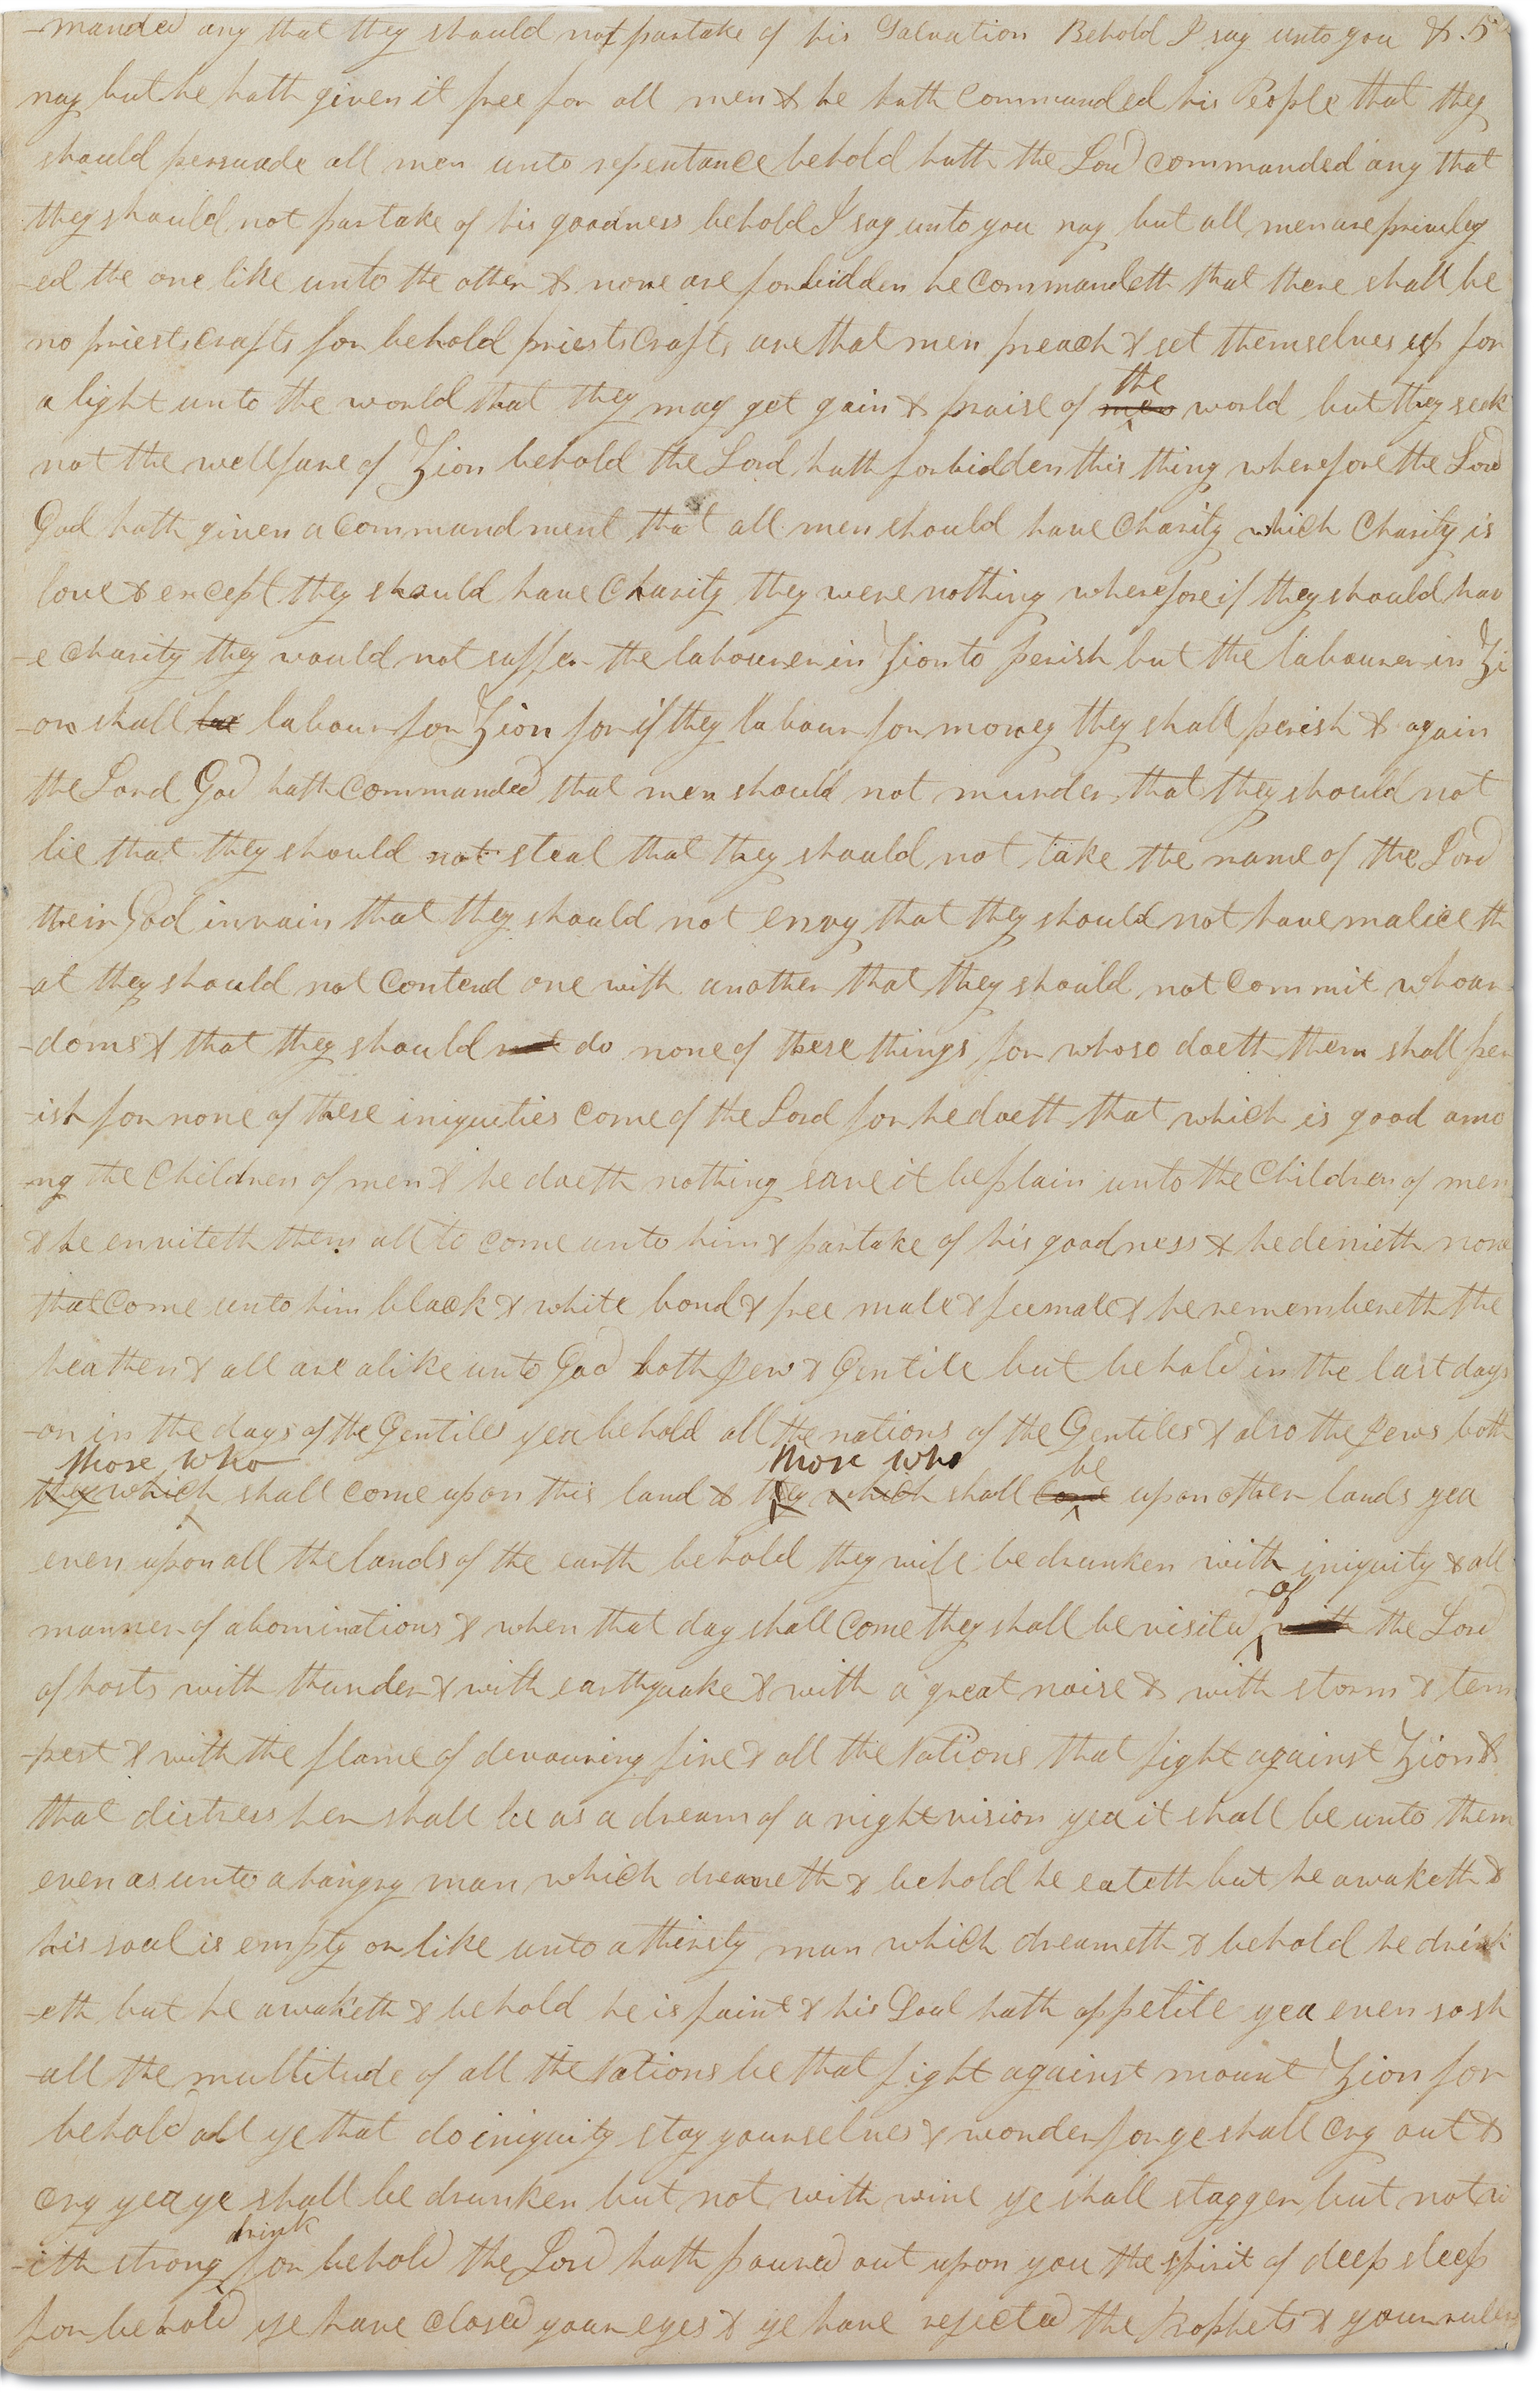 -manded any that they should not partake of his Salvation Behold I say unto you &.5
nay but he hath given it free for all men & he hath commanded his People that they
should persuade all men unto repentance behold hath the Lord commanded any that
they should not partake of his goodness behold I say unto you nay but all men are priviley
-ed the one like unto the other & none are forbidden he commandeth that there shall be
no priestscrafts for behold priestscrafts are that men preach & set themselves up for
the
a light unto the world that they may get gain & praise of men world but they seek
not the wellfare of Zion behold the Lord hath forbidden this thing wherefore the Lord
God hath given a commandment that all men should have charity which charity is
love & except they should have charity they were nothing wherefore if they should hav
-e charity they would not suffer the labourer in Zion to perish but the labourer in Zi
-on shall labour for Zion for if they labour for money they shall perish & again
the Lord God hath commanded that men should not murder that they should not
lie that they should not steal that they should not take the name of the Lord
their God in vain that they should not envy that they should not have malice th
-at they should not contend one with another that they should not commit whoar
-doms & that they should not do none of these things for whoso doeth them shall per
-ish for none of these iniquities come of the Lord for he doeth that which is good amo
-ng the children of men & he doeth nothing save it be plain unto the children of men
& he enviteth them all to come unto him & partake of his goodness & he denieth none
that come unto him black & white bond & free male & feemale & he remembereth the
heathen & all are alike unto God both Jew & Gentile but behold in the last days
-or in the days of the Gentiles yea behold all the nations of the Gentiles & also the Jews both
those who those who be
they which shall come upon this land & they which shall come upon other lands yea
even upon all the lands of the earth behold they will be drunken with iniquity & all
of
manner of abominations & when that day shall come they shall be visited with the Lord
of hosts with thunder & with earthquake & with a great noise & with storm & tem
-pest & with the flame of devouring fire & all the Nations that fight against Zion &
that distress her shall be as a dream of a night vision yea it shall be unto them
even as unto a hungry man which dreameth & behold he eateth but he awaketh &
his soul is empty or like unto a thirsty man which dreameth & behold he drink
-eth but he awaketh & behold he is faint & his Soul hath appetite yea even so sh
-all the multitude of all the Nations be that fight against mount Zion for
behold all ye that do iniquity stay yourselves & wonder for ye shall cry out &
cry yea ye shall be drunken but not with wine ye shall stagger but not w
drink
-ith strong for behold the Lord hath poured out upon you the spirit of deep sleep
for behold ye have closed your eyes & ye have rejected the Prophets & your rulers